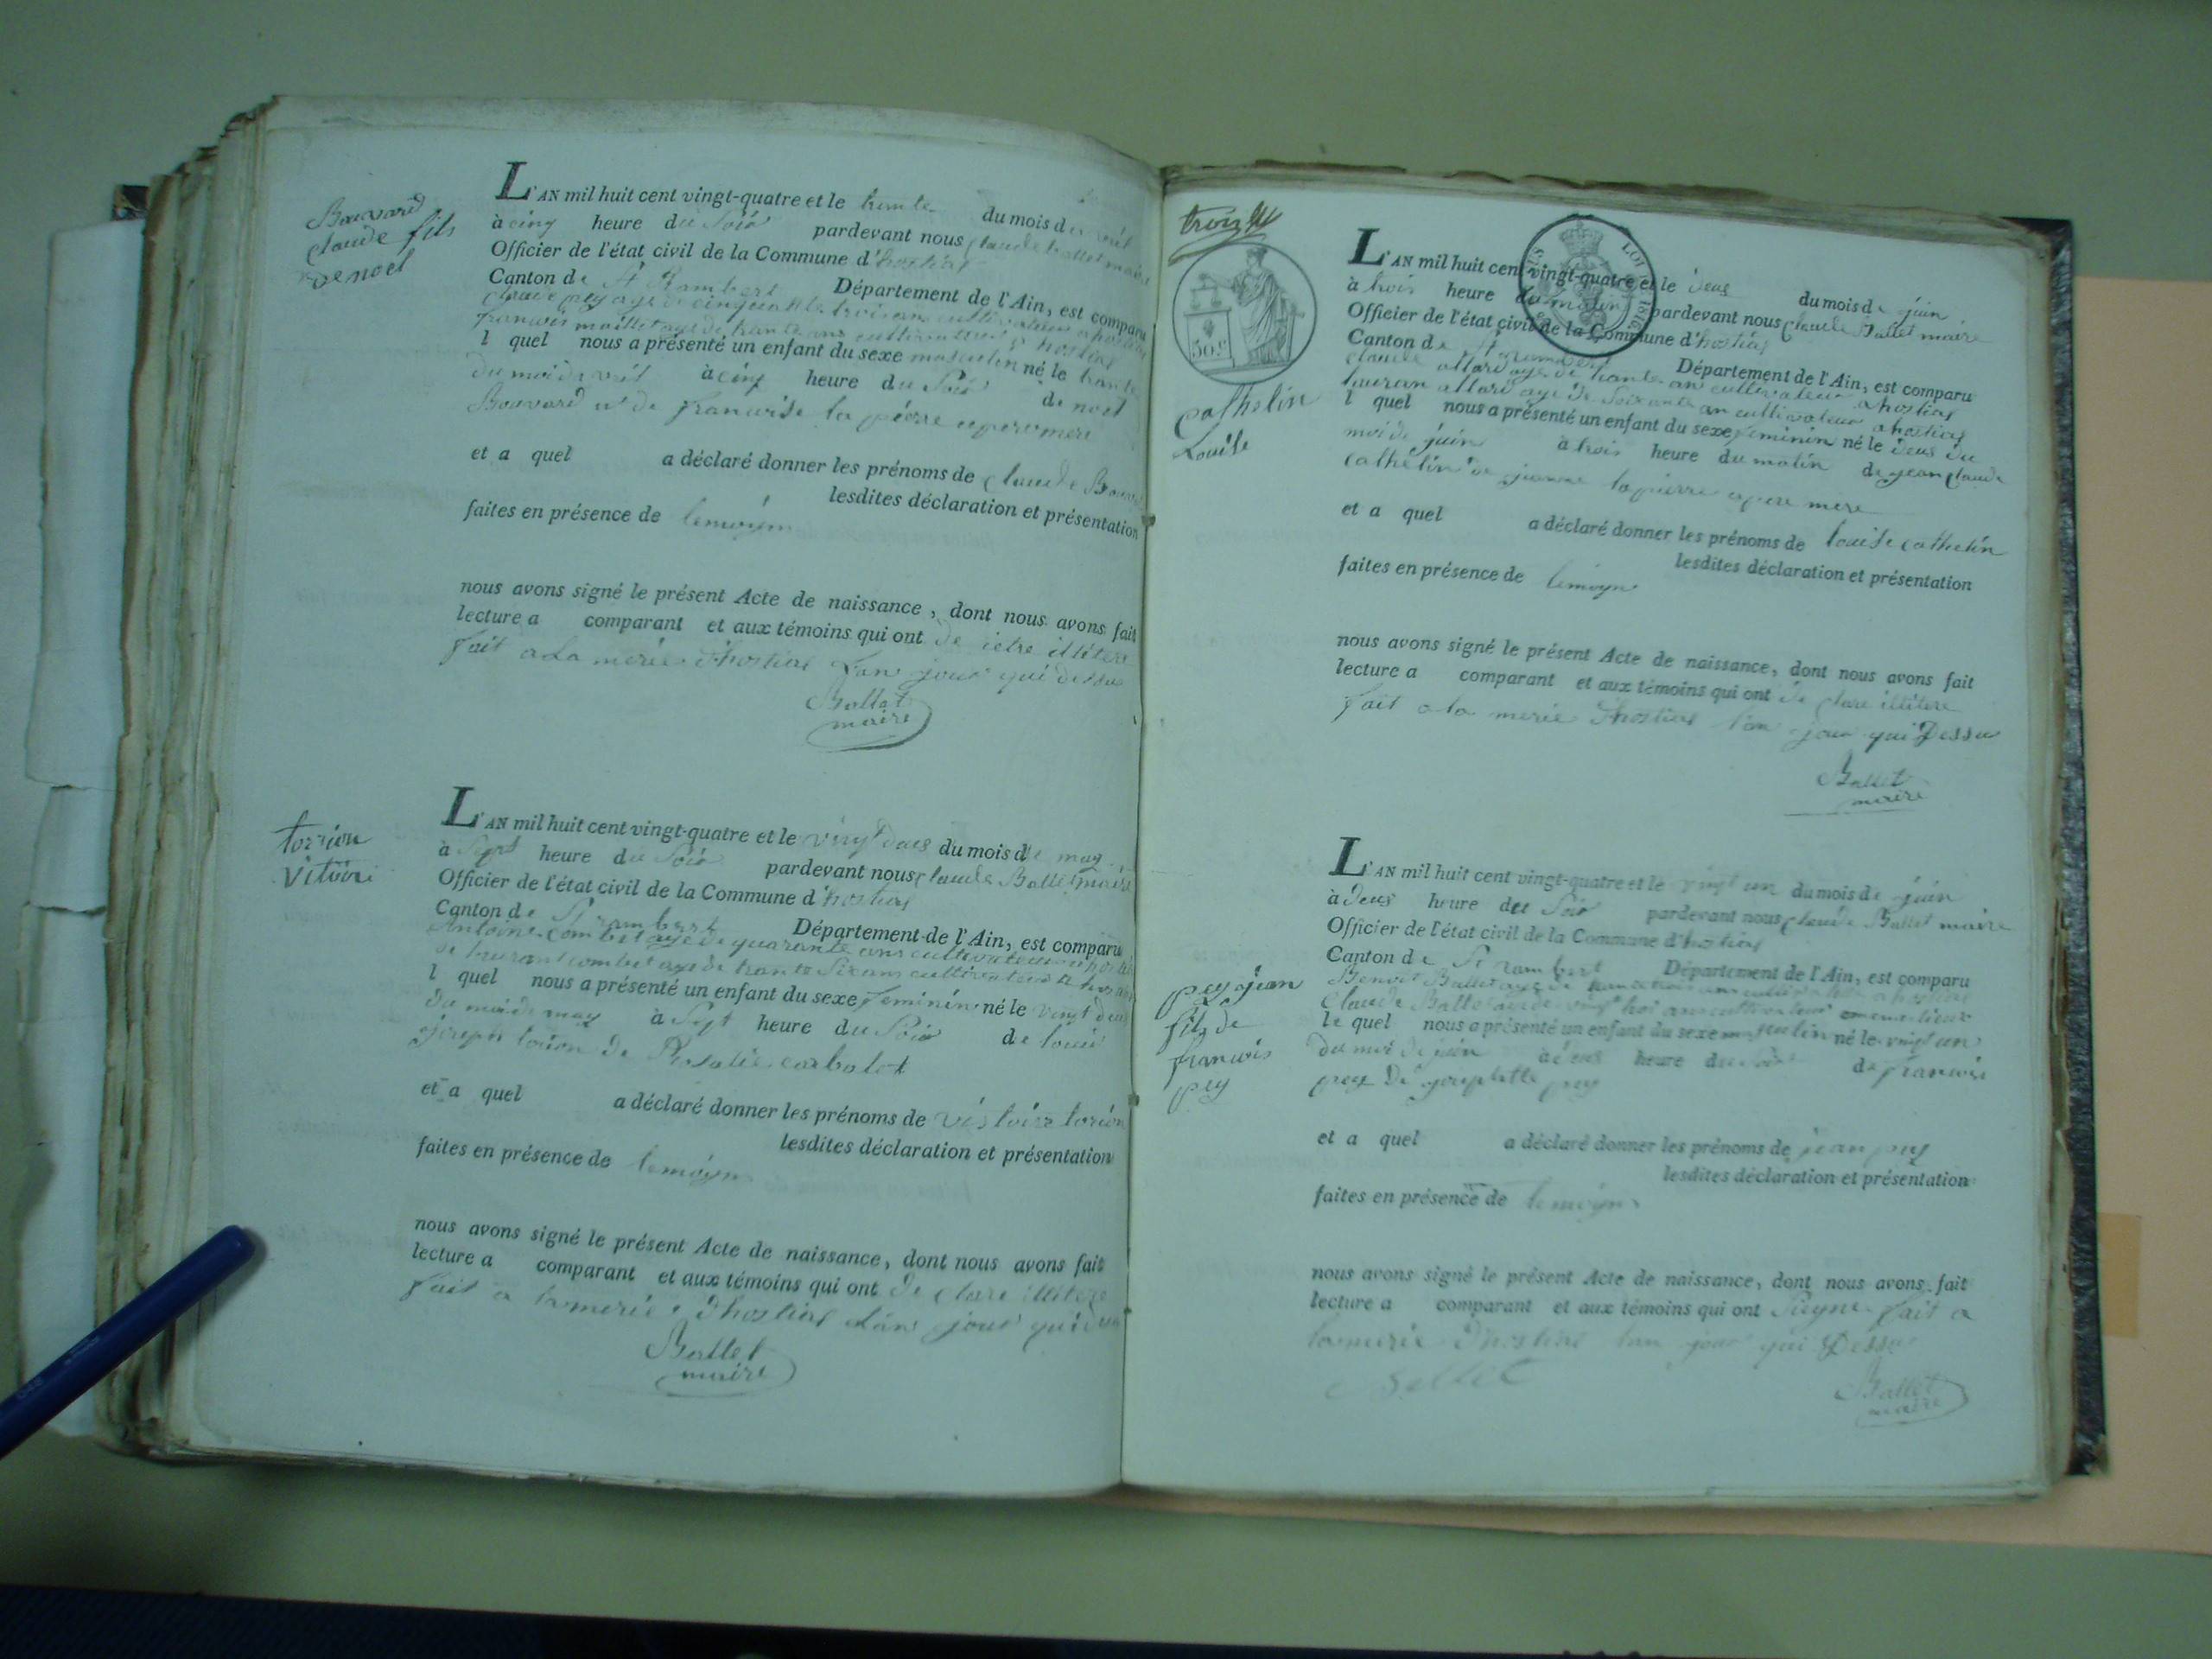 Bouvard
claude fils
de noel
L'AN mil huit cent vingt-quatre et le trente du mois d'avril
à cinq heure du Soir pardevant nous claude Ballet maire
Officier de l'état civil de la Commune d'hostias
Canton de St Rambert Département de l'Ain, est comparu
claude pey age de cinquante trois ans cultivateur a hostias
francois maillet age de trante ans cultivateur a hostias
l quel nous a présenté un enfant du sexe masculin né le trante
du moi davril à cinq heure du Soir de noel
Bouvard et de francoise la pierre a pere mere
et a quel a déclaré donner les prénoms de claude Bouvard
lesdites déclaration et présentation
faites en présence de temoyns
nous avons signé le présent Acte de naissance, dont nous avons fait
lecture a comparant et aux témoins qui ont de clre illitere
fait a la merie d'hostias l'an jour qui dessus
Ballet
maire
torrion
Vitoire
L'AN mil huit cent vingt-quatre et le vingt deus du mois de may
à Sept heure du Soir pardevant nous claude Ballet maire
Officier de l'état civil de la Commune d'hostias
Canton de St rambert Département de l'Ain, est comparu
Antoine combet age de quarante ans cultivateur a hostias
combet age de trante Six ans cultivateur a hostias
l quel nous a présenté un enfant du sexe feminin né le vingt deus
du moi de may à Sept heure du Soir de louis
joseph torion de Rosalie carbolet
et a quel a déclaré donner les prénoms de victoire torion
lesdites déclaration et présentation
faites en présence de temoyns
nous avons signé le présent Acte de naissance, dont nous avons fait
lecture a comparant et aux témoins qui ont de clare illitere
fait a la merie d'hostias l'an jour qui dessus
Ballet
maire
trois
50 c
LOUIS
1816
Cathelin
Louise
L'AN mil huit cent vingt-quatre et le deus du mois de juin
à trois heure du matin pardevant nous claude Ballet maire
Officier de l'état civil de la Commune d'hostias
Canton de St rambert Département de l'Ain, est comparu
claude allard age de trante ans cultivateur a hostias
lauran allard age de soixante an cultivateur a hostias
l quel nous a présenté un enfant du sexe feminin né le deus du
moi de juin à trois heure du matin de jean claude
cathelin de jeanne lapierre a pere mere
et a quel a déclaré donner les prénoms de louise cathelin
lesdites déclaration et présentation
faites en présence de temoyns
nous avons signé le présent Acte de naissance, dont nous avons fait
lecture a comparant et aux témoins qui ont de clare illitere
fait a la merie d'hostias l'an jour qui Dessus
Ballet
maire
pey jean
fils de
francois
pey
L'AN mil huit cent vingt-quatre et le vingt un du mois de juin
à deus heure du Soir pardevant nous claude Ballet maire
Officier de l'état civil de la Commune d'hostias
Canton de St rambert Département de l'Ain, est comparu
Benoit Ballet age de ans cultivateur a hostias
Claude Ballet age de vingt troi ans cultivateur
le quel nous a présenté un enfant du sexe masculin né le vingt un
du moi de juin à deus heure du soir de francois
pey De josephette pey
et a quel a déclaré donner les prénoms de jean pey
lesdites déclaration et présentation
faites en présence de temoyns
nous avons signé le présent Acte de naissance, dont nous avons fait
lecture a comparant et aux témoins qui ont Signe fait a
la merie d'hostias l'an jour qui Dessus
Ballet
Ballet
maire